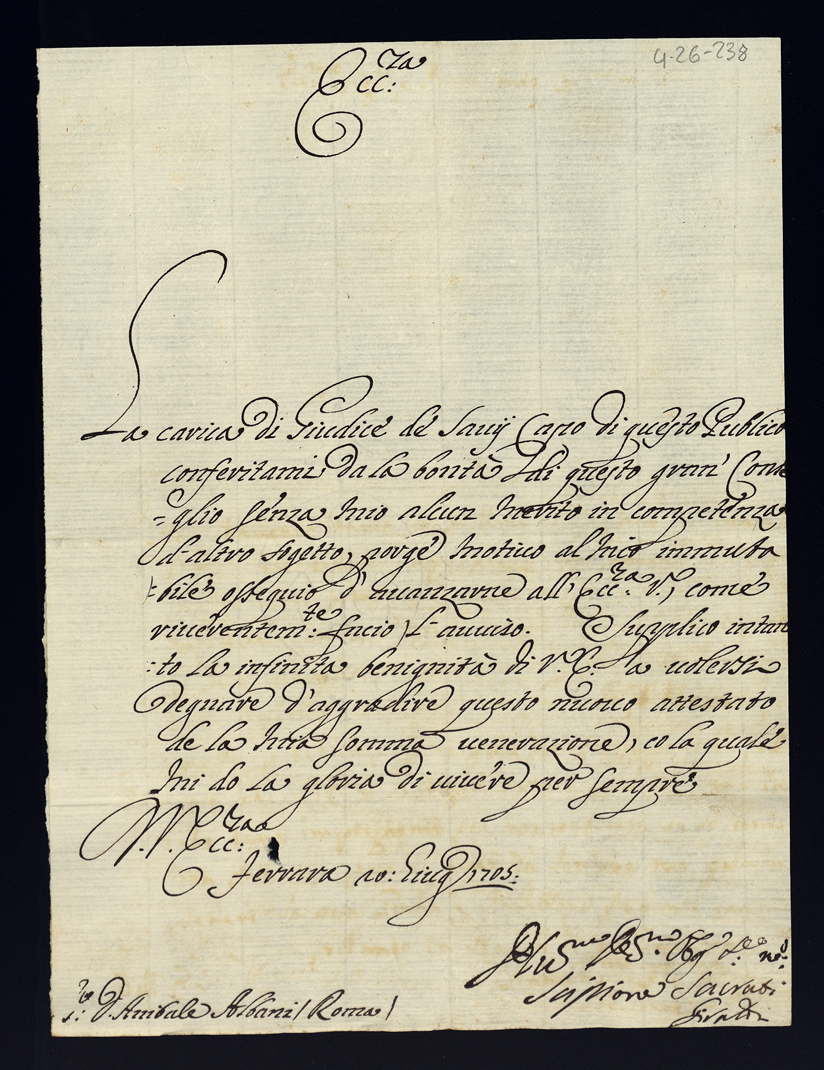 4-26-238
Ecc:za
La carica di Giudice de Savij Capo di questo Publico
conferitami da la bontà di questo gran' Conse
=glio senza mio alcun merito in competenza
d'altro sogetto, porge motivo al mio immuta
:bile ossequio d'avanzarne all'Ecc:za V.a, come
riverentem:te facio l'aviso. E supplico intan
:to la infinita benignità di V.E. a volersi
degnare d'aggradire questo nuovo attestato
de la mia somma venerazione, co la quale
mi do la gloria di vivere per sempre
Di V. Ecc:za
Ferrara 10: Giug 1705:
Scipione Sacrati
Giraldi
S:r D. Anibale Albani / Roma /